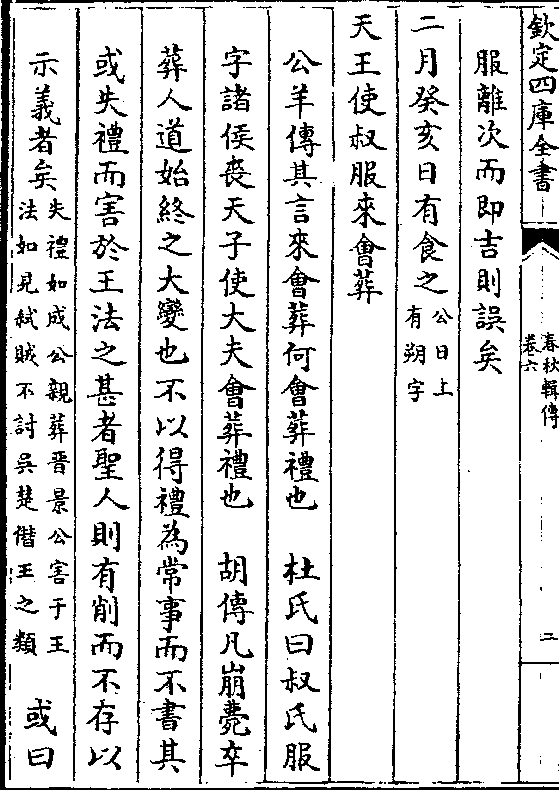 欽定四庫全書
春秋輯傳
卷六
二
服離次而即吉則誤矣
二月癸亥日有食之公日上有朔字
天王使叔服來會葬
公羊傳其言來會葬何會葬禮也　杜氏曰叔氏服
字諸侯喪天子使大夫會葬禮也　胡傳凡崩薨卒
葬人道始終之大變也不以得禮為常事而不書其
或失禮而害於王法之甚者聖人則有削而不存以
示義者矣失禮如成公親葬晉景公害于王法如見弑賊不討吳楚僭王之類　或曰